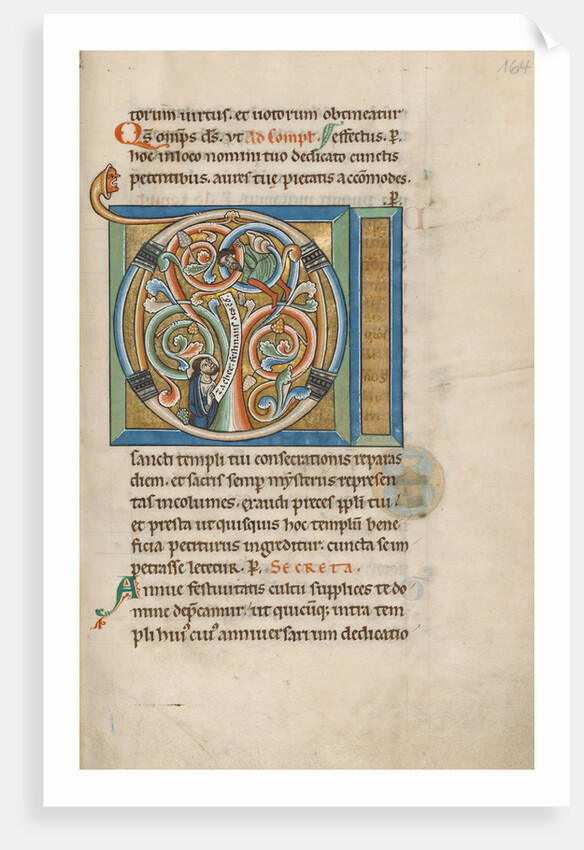 164
torum uirtus. et uotorum obtineatur
Qs omps ds. vt Ad Compl. effectus. P.
hoc in loco nomini tuo dedicato cunctis
petentibus. aures tuę pietatis accōmodes.
.P.
D
Zachee festinans
sancti templi tui consecrationis reparas
diem. et sacris semp mysteriis represen
tas incolumes. exaudi preces ppli tui.
et presta ut quisquis hoc templū bene
ficia petiturus ingreditur. cuncta se im
petrasse letetur. P. SECRETA.
Annue festiuitatis cultu supplices te do
mine dep̄camur. ut quicūq; intra tem
pli huiꝰ cuiꝰ anniuersarium dedicatio